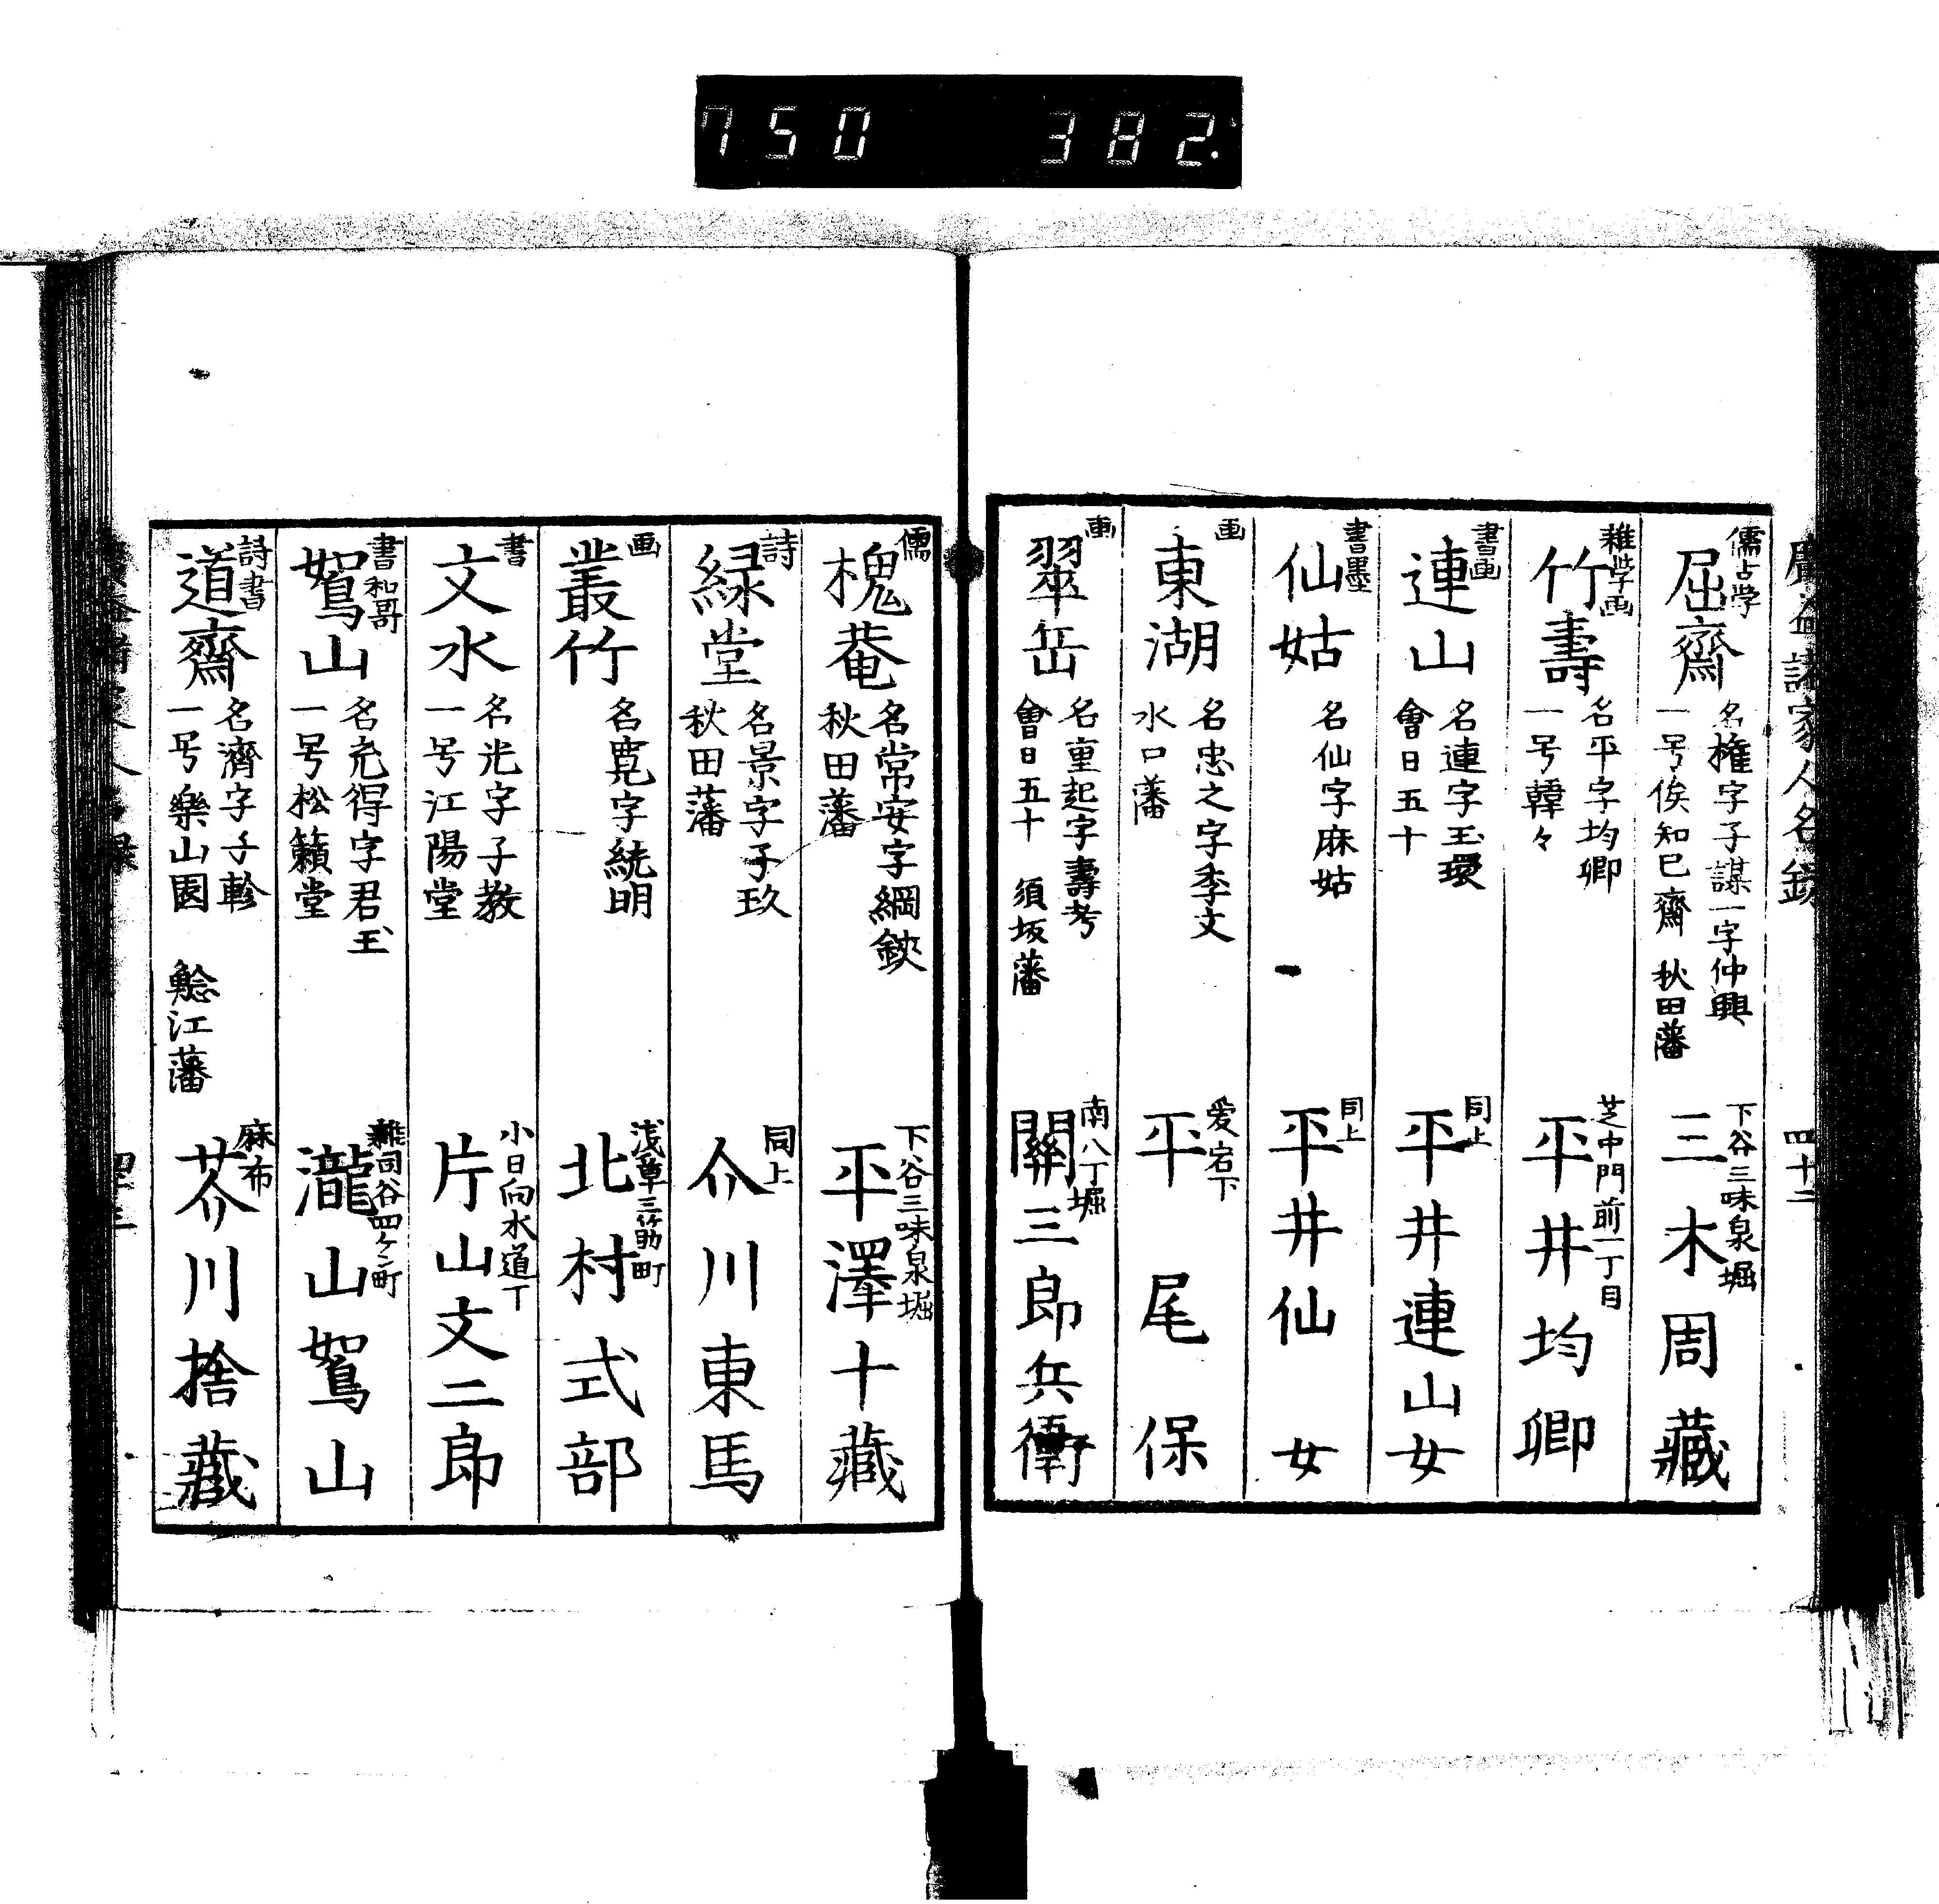 750 382.
廣益諸家人名録
四十二
儒占学
屈齋
名権字子謀一字仲興
一号俟知已齋 秋田藩
下谷三味泉堀
三木周藏
雑学画
竹壽
名平字均卿
一号韓々
芝中門前一丁目
平井均卿
書画
連山
名連字玉環
會日五十
同上
平井連山女
書墨
仙姑
名仙字麻姑
同上
平井仙女
画
東湖
名忠之字季文
水口藩
爱宕下
平尾保
画
翠岳
名重起字壽考
會日五十 須坂藩
南八丁堀
關三郎兵衛
儒
槐菴
名常安字綱鋏
秋田藩
下谷三味泉堀
平澤十藏
詩
緑堂
名景字子玖
秋田藩
同上
介川東馬
画
叢竹
名寛字統明
浅草三筋町
北村式部
書
文水
名光字子教
一号江陽堂
小日向水道丁
片山文二郎
書和哥
鴛山
名充得字君玉
一号松籟堂
雑司谷四ケ町
瀧山鴛山
詩書
道齋
名濟字子軫
一号樂山園 鯰江藩
麻布
芥川捨藏